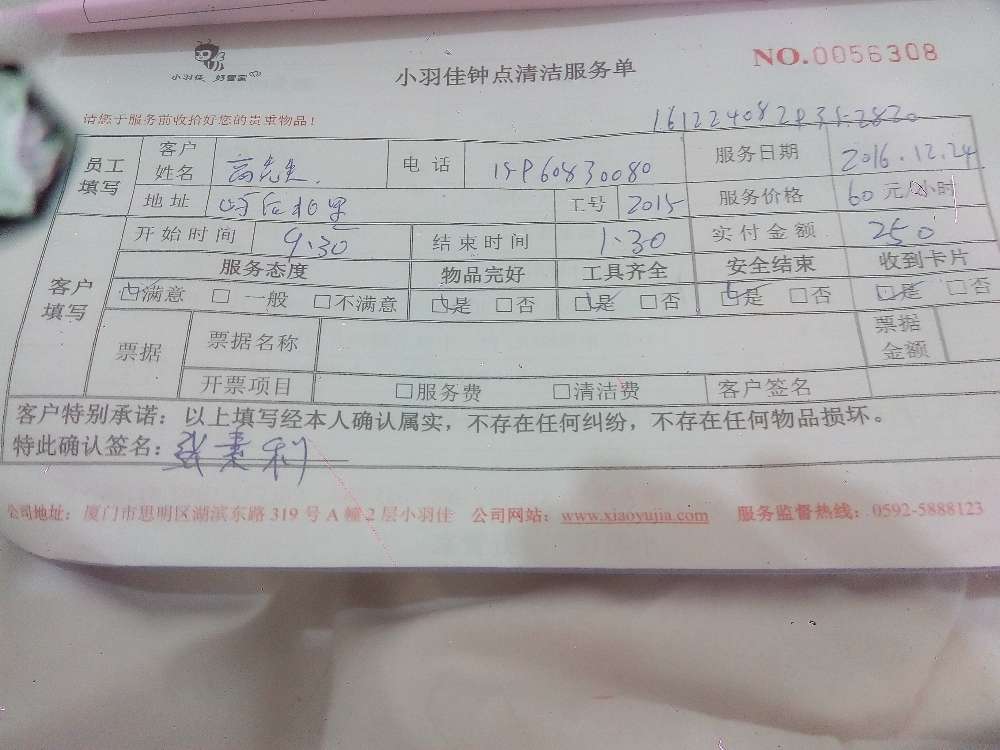 小羽佳 好管家
小羽佳钟点清洁服务单
NO.0056308
请您于服务前收拾好您的贵重物品!
员工填写 客户姓名 高先生. 电话 服务日期 2016.12.24
地址 工号 2015 服务价格 60元/小时
客户填写 开始时间 9.30 结束时间 1.30 实付金额 250
服务态度 物品完好 工具齐全 安全结束 收到卡片
☑满意 □一般 □不满意 ☑是 □否 ☑是 □否 ☑是 □否 ☑是 □否
票据 票据名称 票据金额
开票项目 □服务费 □清洁费 客户签名
客户特别承诺:以上填写经本人确认属实,不存在任何纠纷,不存在任何物品损坏。
特此确认签名:
公司地址:厦门市思明区湖滨东路319号A幢2层小羽佳 公司网站:www.xiaoyujia.com 服务监督热线:0592-5888123